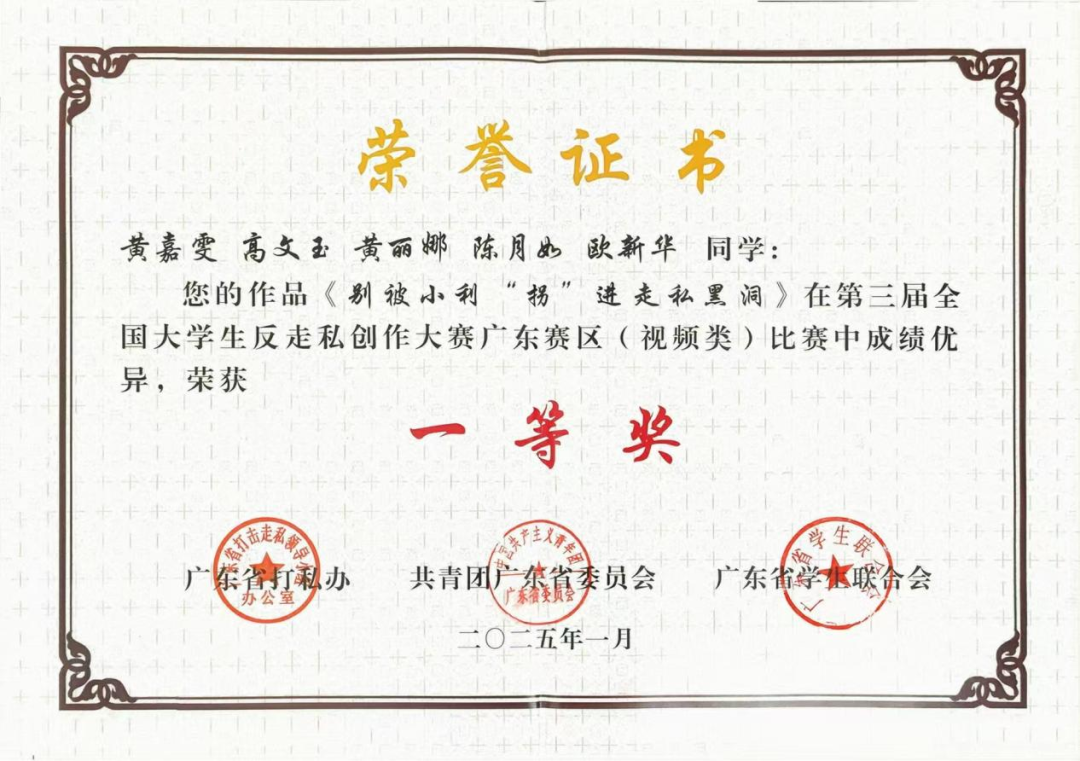 荣誉证书
黄嘉雯 高文玉 黄丽娜 陈月如 欧新华 同学：
您的作品《别被小利“拐”进走私黑洞》在第三届全
国大学生反走私创作大赛广东赛区（视频类）比赛中成绩优
异，荣获
一等奖
广东省打私办 共青团广东省委员会 广东省学生联合会
办公室
广东省委员会
二〇二五年一月